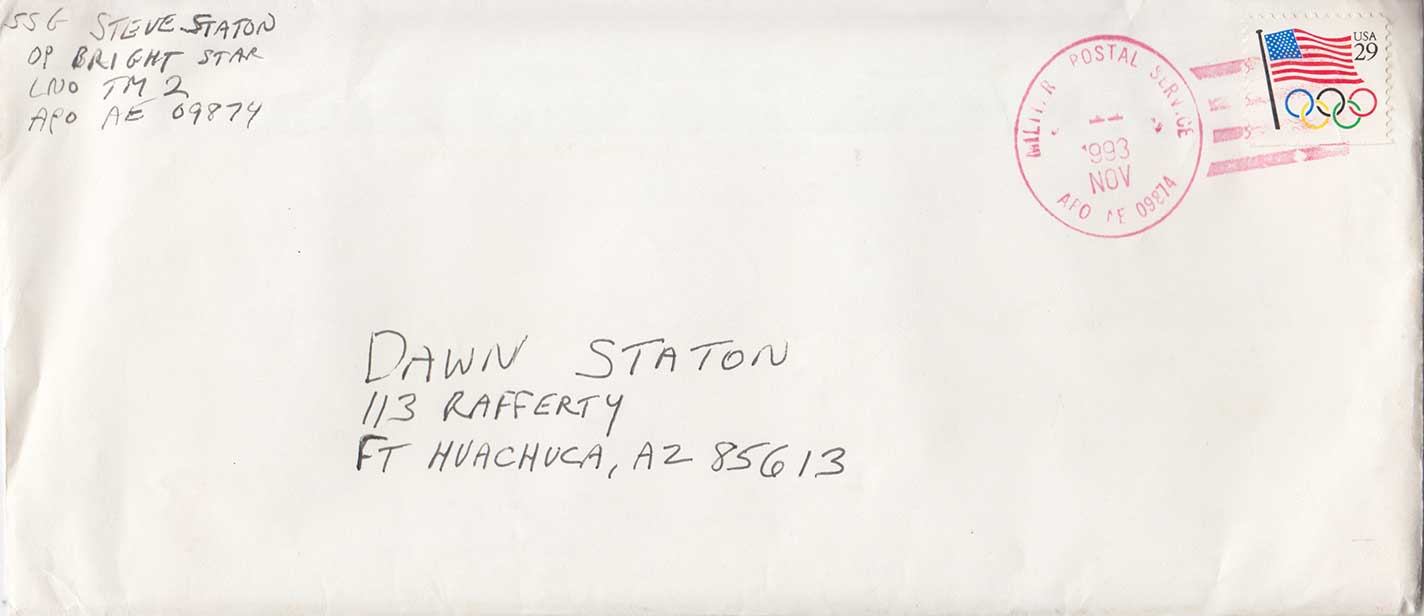 SSG STEVE STATON
OP BRIGHT STAR
LNO TM 2
APO AE 09874
USA
29
POSTAL SERVICE
1993
NOV
APO AE 09874
DAWN STATON
113 RAFFERTY
FT HUACHUCA, AZ 85613